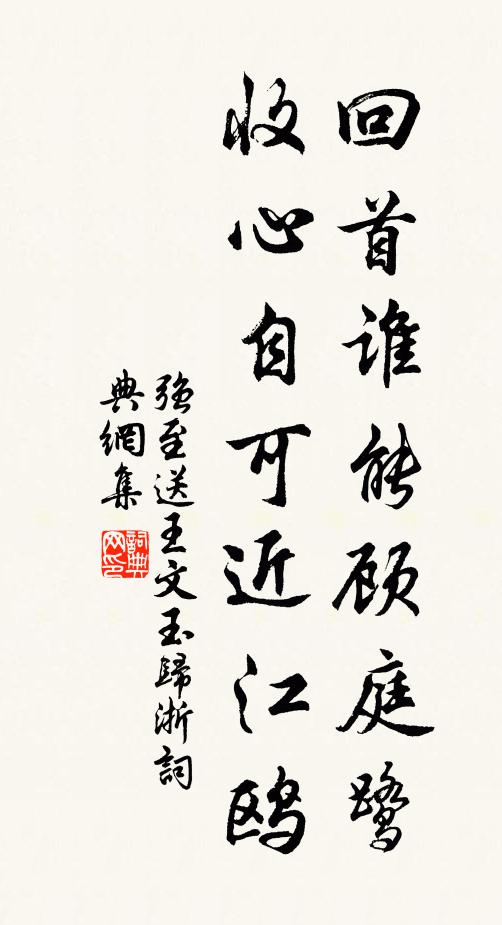 回首谁能顾庭鹭
收心自可近江鸥
强至送王文玉歸浙詞
典網集
詞典网印